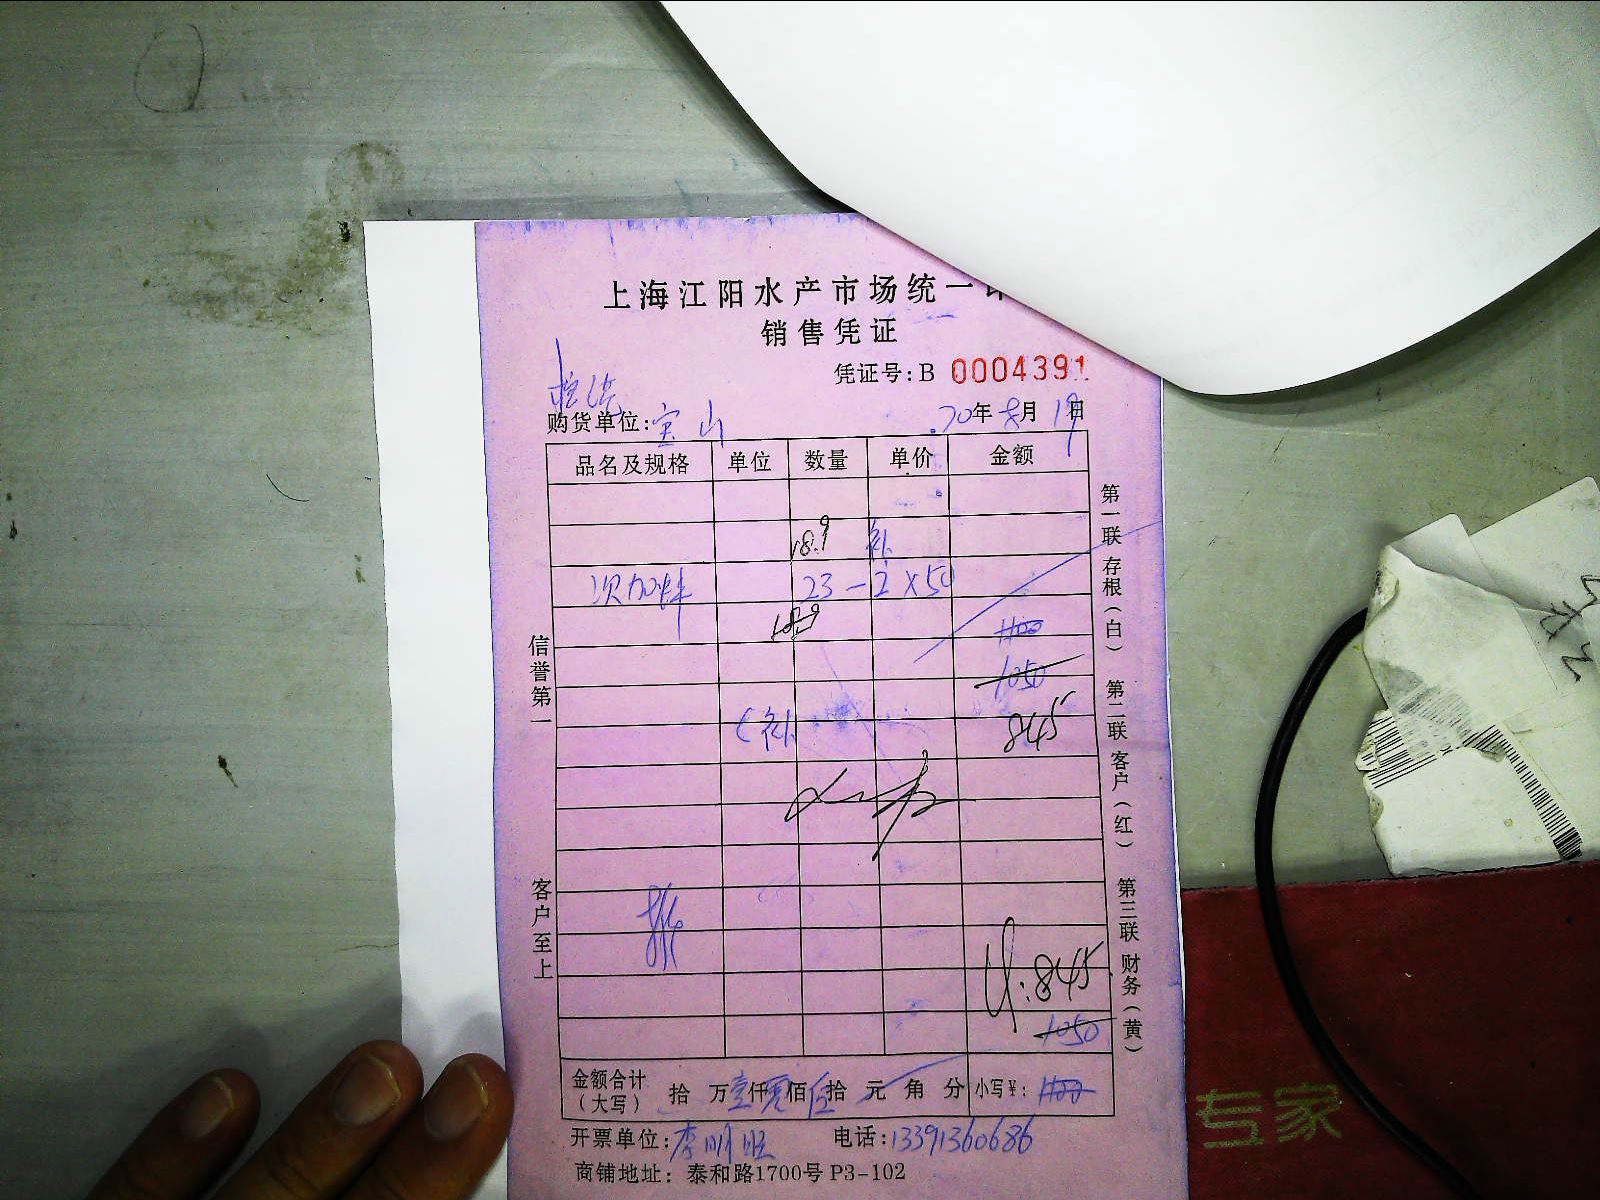 上海江阳水产市场统一
销售凭证
凭证号:B 0004391
购货单位:宝山
年 月 19日
品名及规格 单位 数量 单价 金额
18.9 补
次加鲜 23-2×50
18.9
1100
1050
(补 845
845
1050
金额合计(大写) 拾 万壹仟 佰伍拾 元 角 分 小写¥: 1100
开票单位:李明旺 电话:13391360686
商铺地址: 泰和路1700号 P3-102
信誉第一
客户至上
第一联 存根(白)
第二联 客户(红)
第三联 财务(黄)
专家